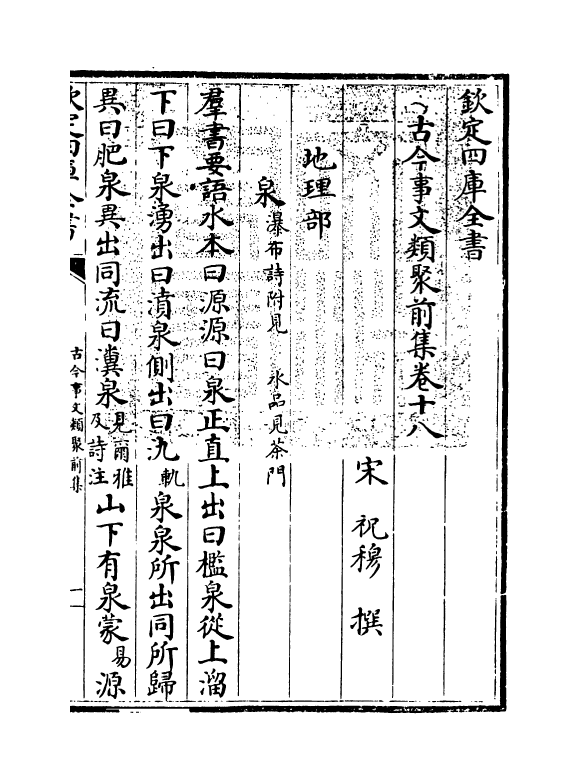 欽定四庫全書
古今事文類聚前集卷十八
宋 祝穆 撰
地理部
泉 瀑布詩附見 水品見茶門
羣書要語水本曰源源曰泉正直上出曰檻泉從上溜
下曰下泉湧出曰濆泉側出曰氿軌泉泉所出同所歸
異曰肥泉異出同流曰瀵泉見爾雅及詩注山下有泉蒙易源
欽定四庫全書
古今事文類聚前集
一